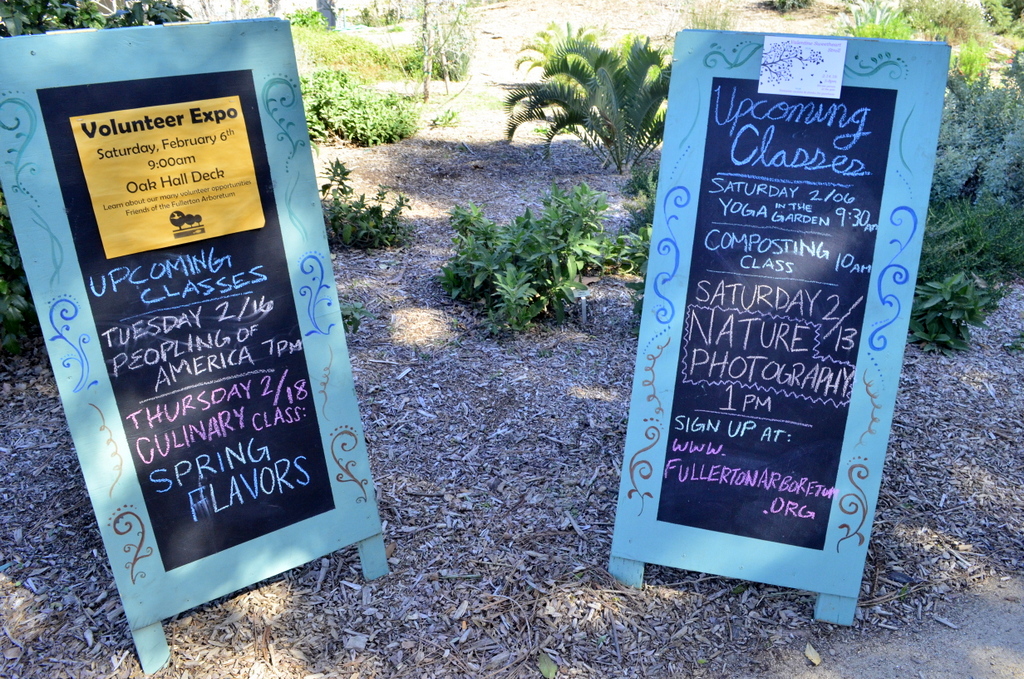 Volunteer Expo
Saturday, February 6th
9:00am
Oak Hall Deck
Learn about our many volunteer opportunities
Friends of the Fullerton Arboretum
UPCOMING
CLASSES
TUESDAY 2/16
PEOPLING OF
AMERICA 7PM
THURSDAY 2/18
CULINARY CLASS:
SPRING
FLAVORS
Upcoming
Classes
SATURDAY 2/06
IN THE
YOGA GARDEN 9:30am
COMPOSTING
CLASS 10AM
SATURDAY 2/13
NATURE
PHOTOGRAPHY
1 PM
SIGN UP AT:
WWW.
FULLERTONARBORETUM
.ORG